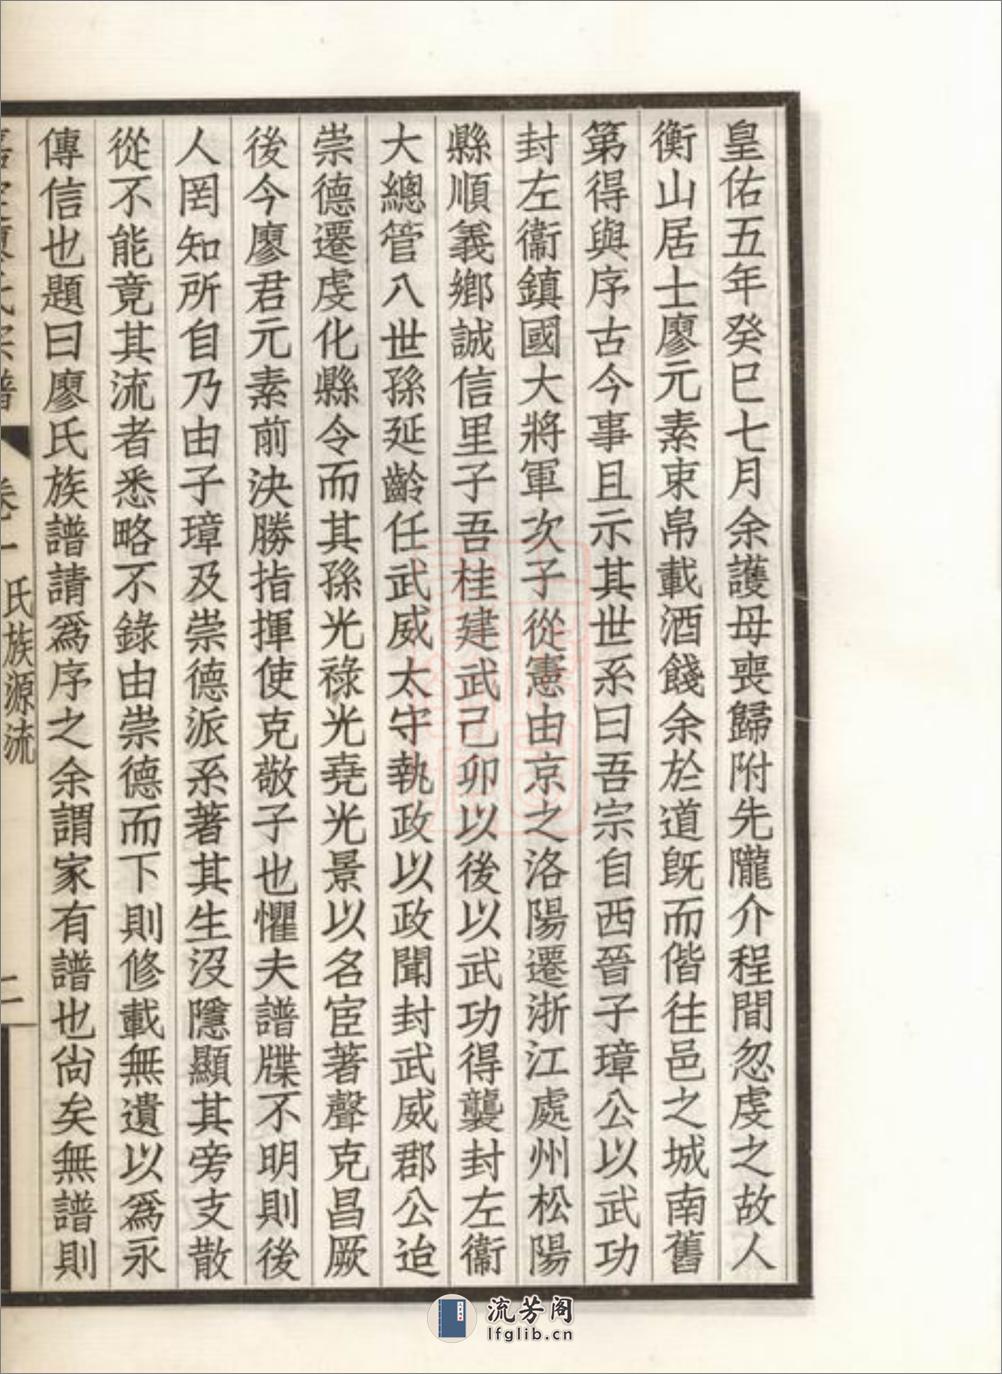 皇佑五年癸巳七月余護母喪歸附先隴介程間忽虔之故人
衡山居士廖元素束帛載酒餞余於道既而偕往邑之城南舊
第得與序古今事且示其世系曰吾宗自西晉子璋公以武功
封左衞鎮國大將軍次子從憲由京之洛陽遷浙江處州松陽
縣順義鄉誠信里子吾桂建武己卯以後以武功得襲封左衞
大總管八世孫延齡任武威太守執政以政聞封武威郡公迨
崇德遷虔化縣令而其孫光祿光堯光景以名宦著聲克昌厥
後今廖君元素前決勝指揮使克敬子也懼夫譜牒不明則後
人罔知所自乃由子璋及崇德派系著其生沒隱顯其旁支散
從不能竟其流者悉略不錄由崇德而下則修載無遺以為永
傳信也題曰廖氏族譜請爲序之余謂家有譜也尚矣無譜則
氏族源流
二
流芳阁
lfglib.cn